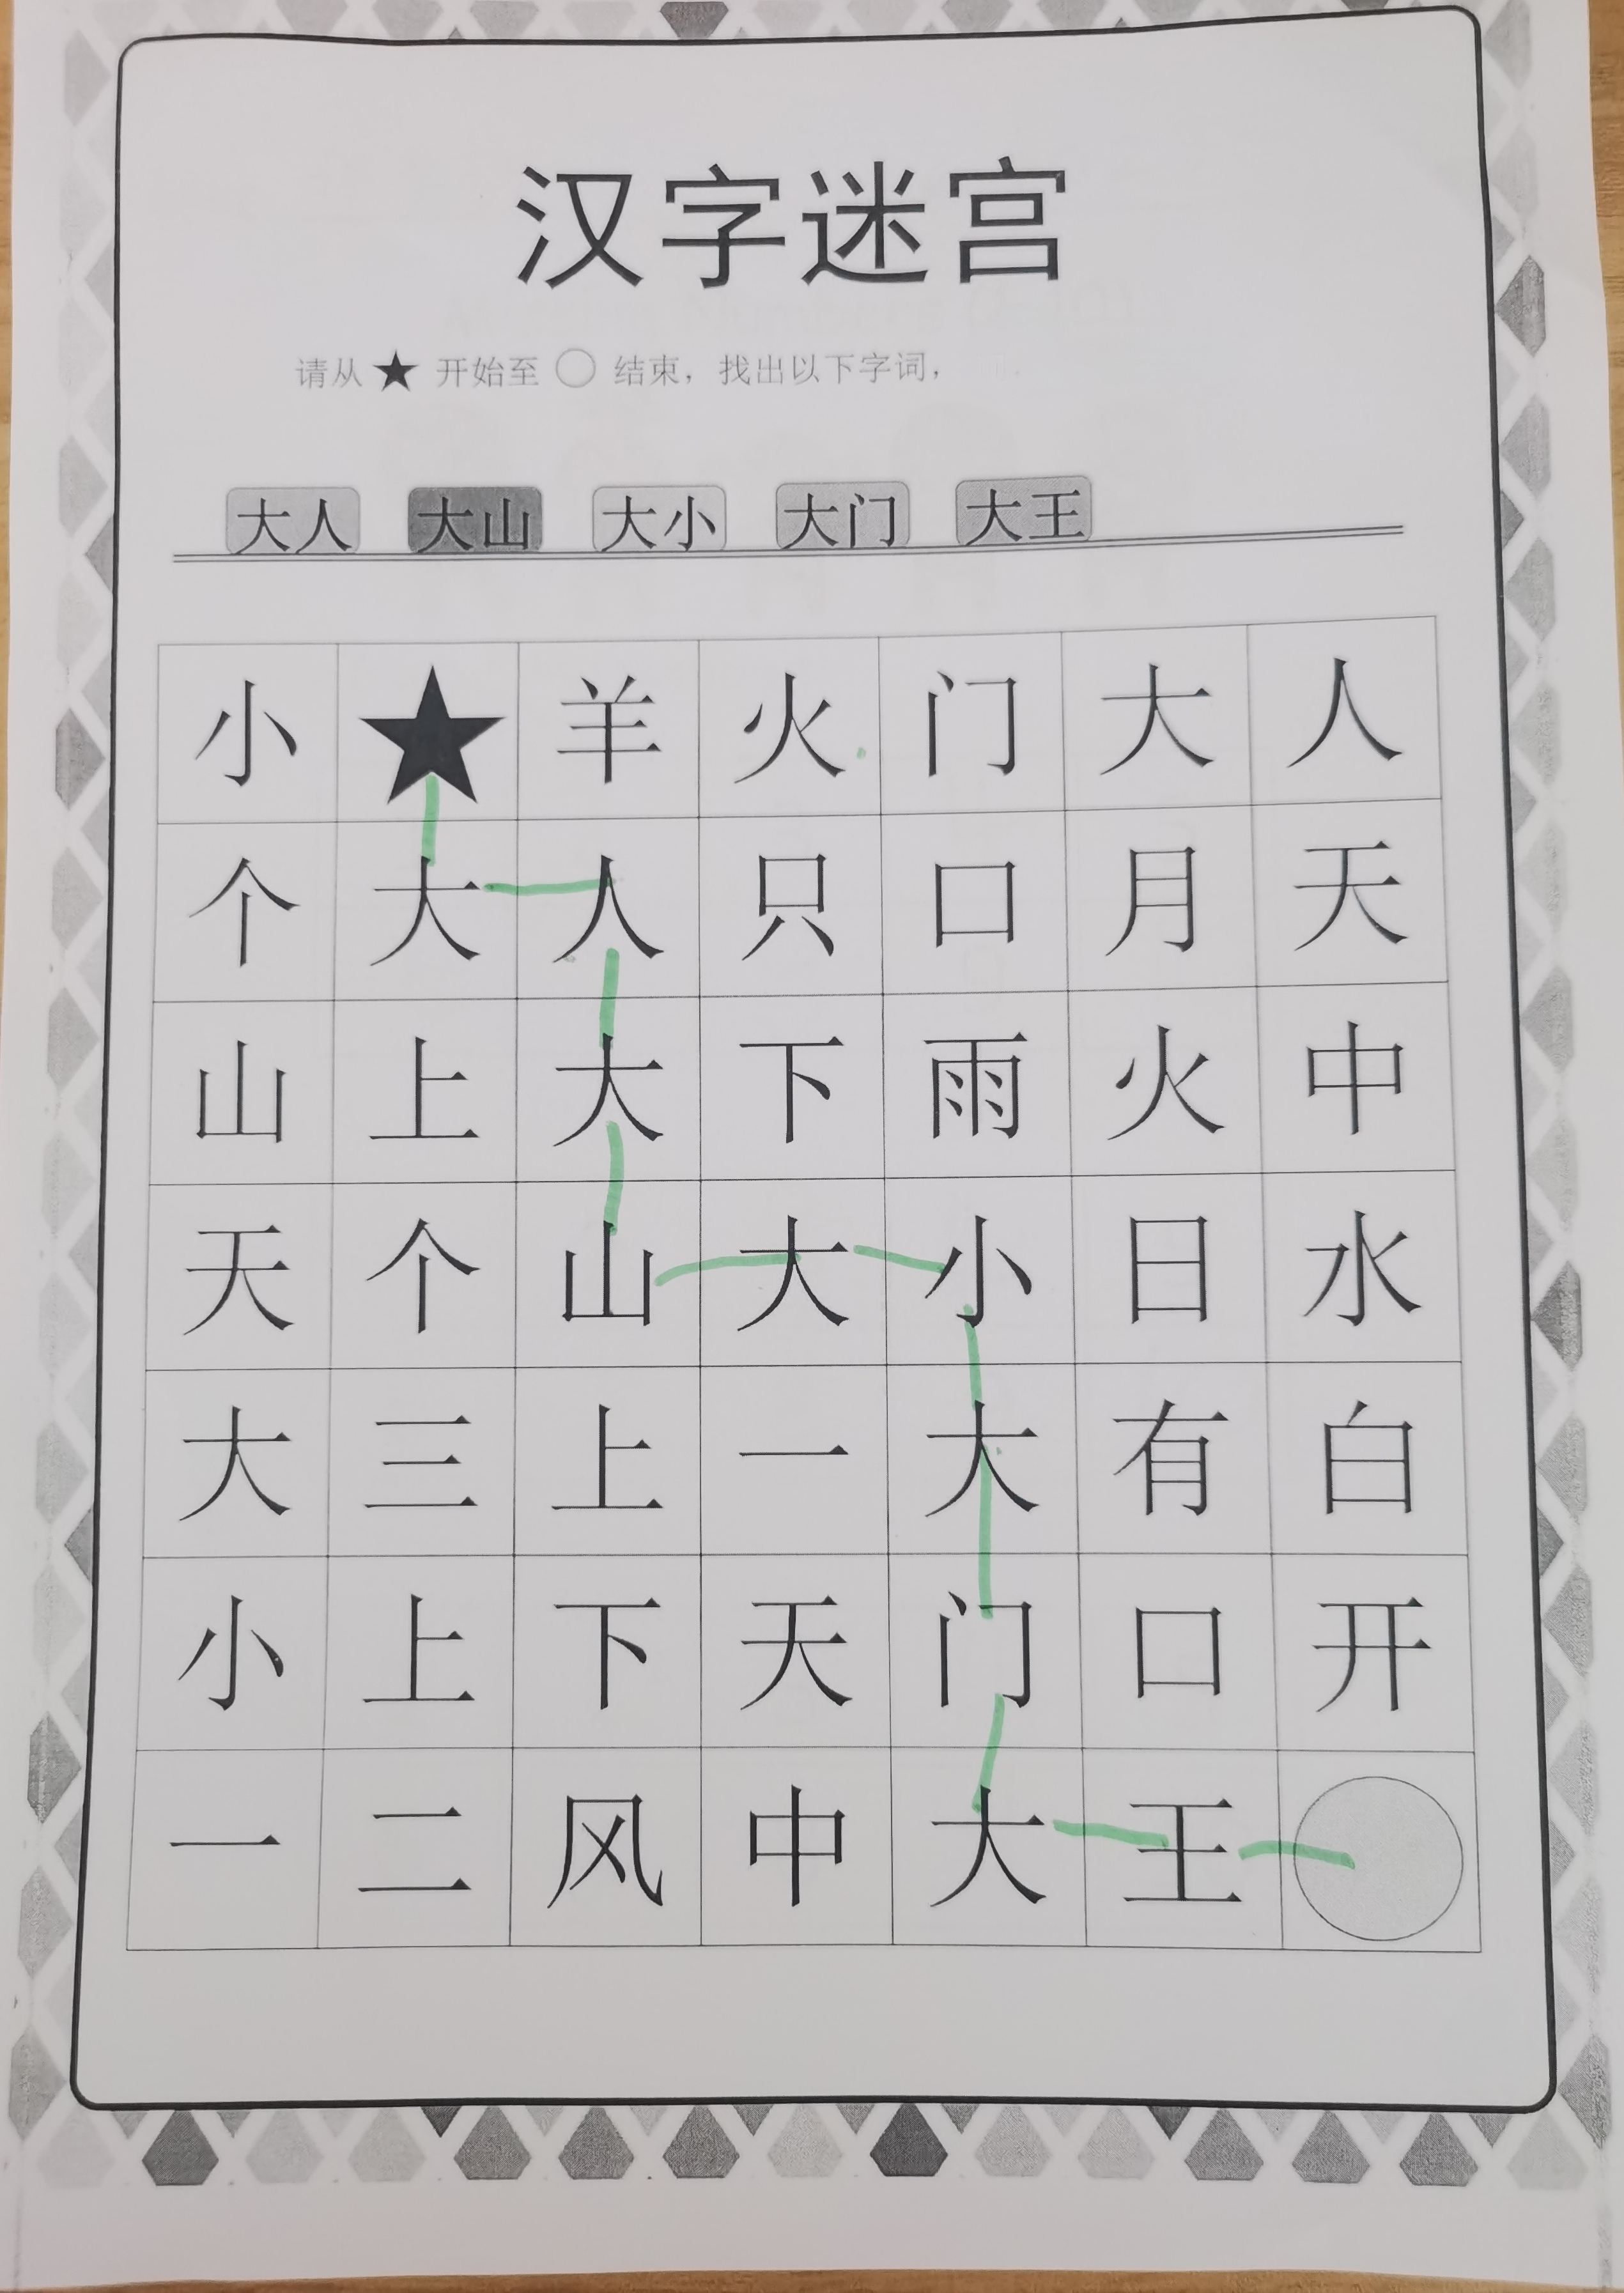 汉字迷宫
请从★开始至○结束，找出以下字词，
大人 大山 大小 大门 大王
小 ★ 羊 火 门 大 人
个 大 人 只 口 月 天
山 上 大 下 雨 火 中
天 个 山 大 小 日 水
大 三 上 一 大 有 白
小 上 下 天 门 口 开
一 二 风 中 大 王